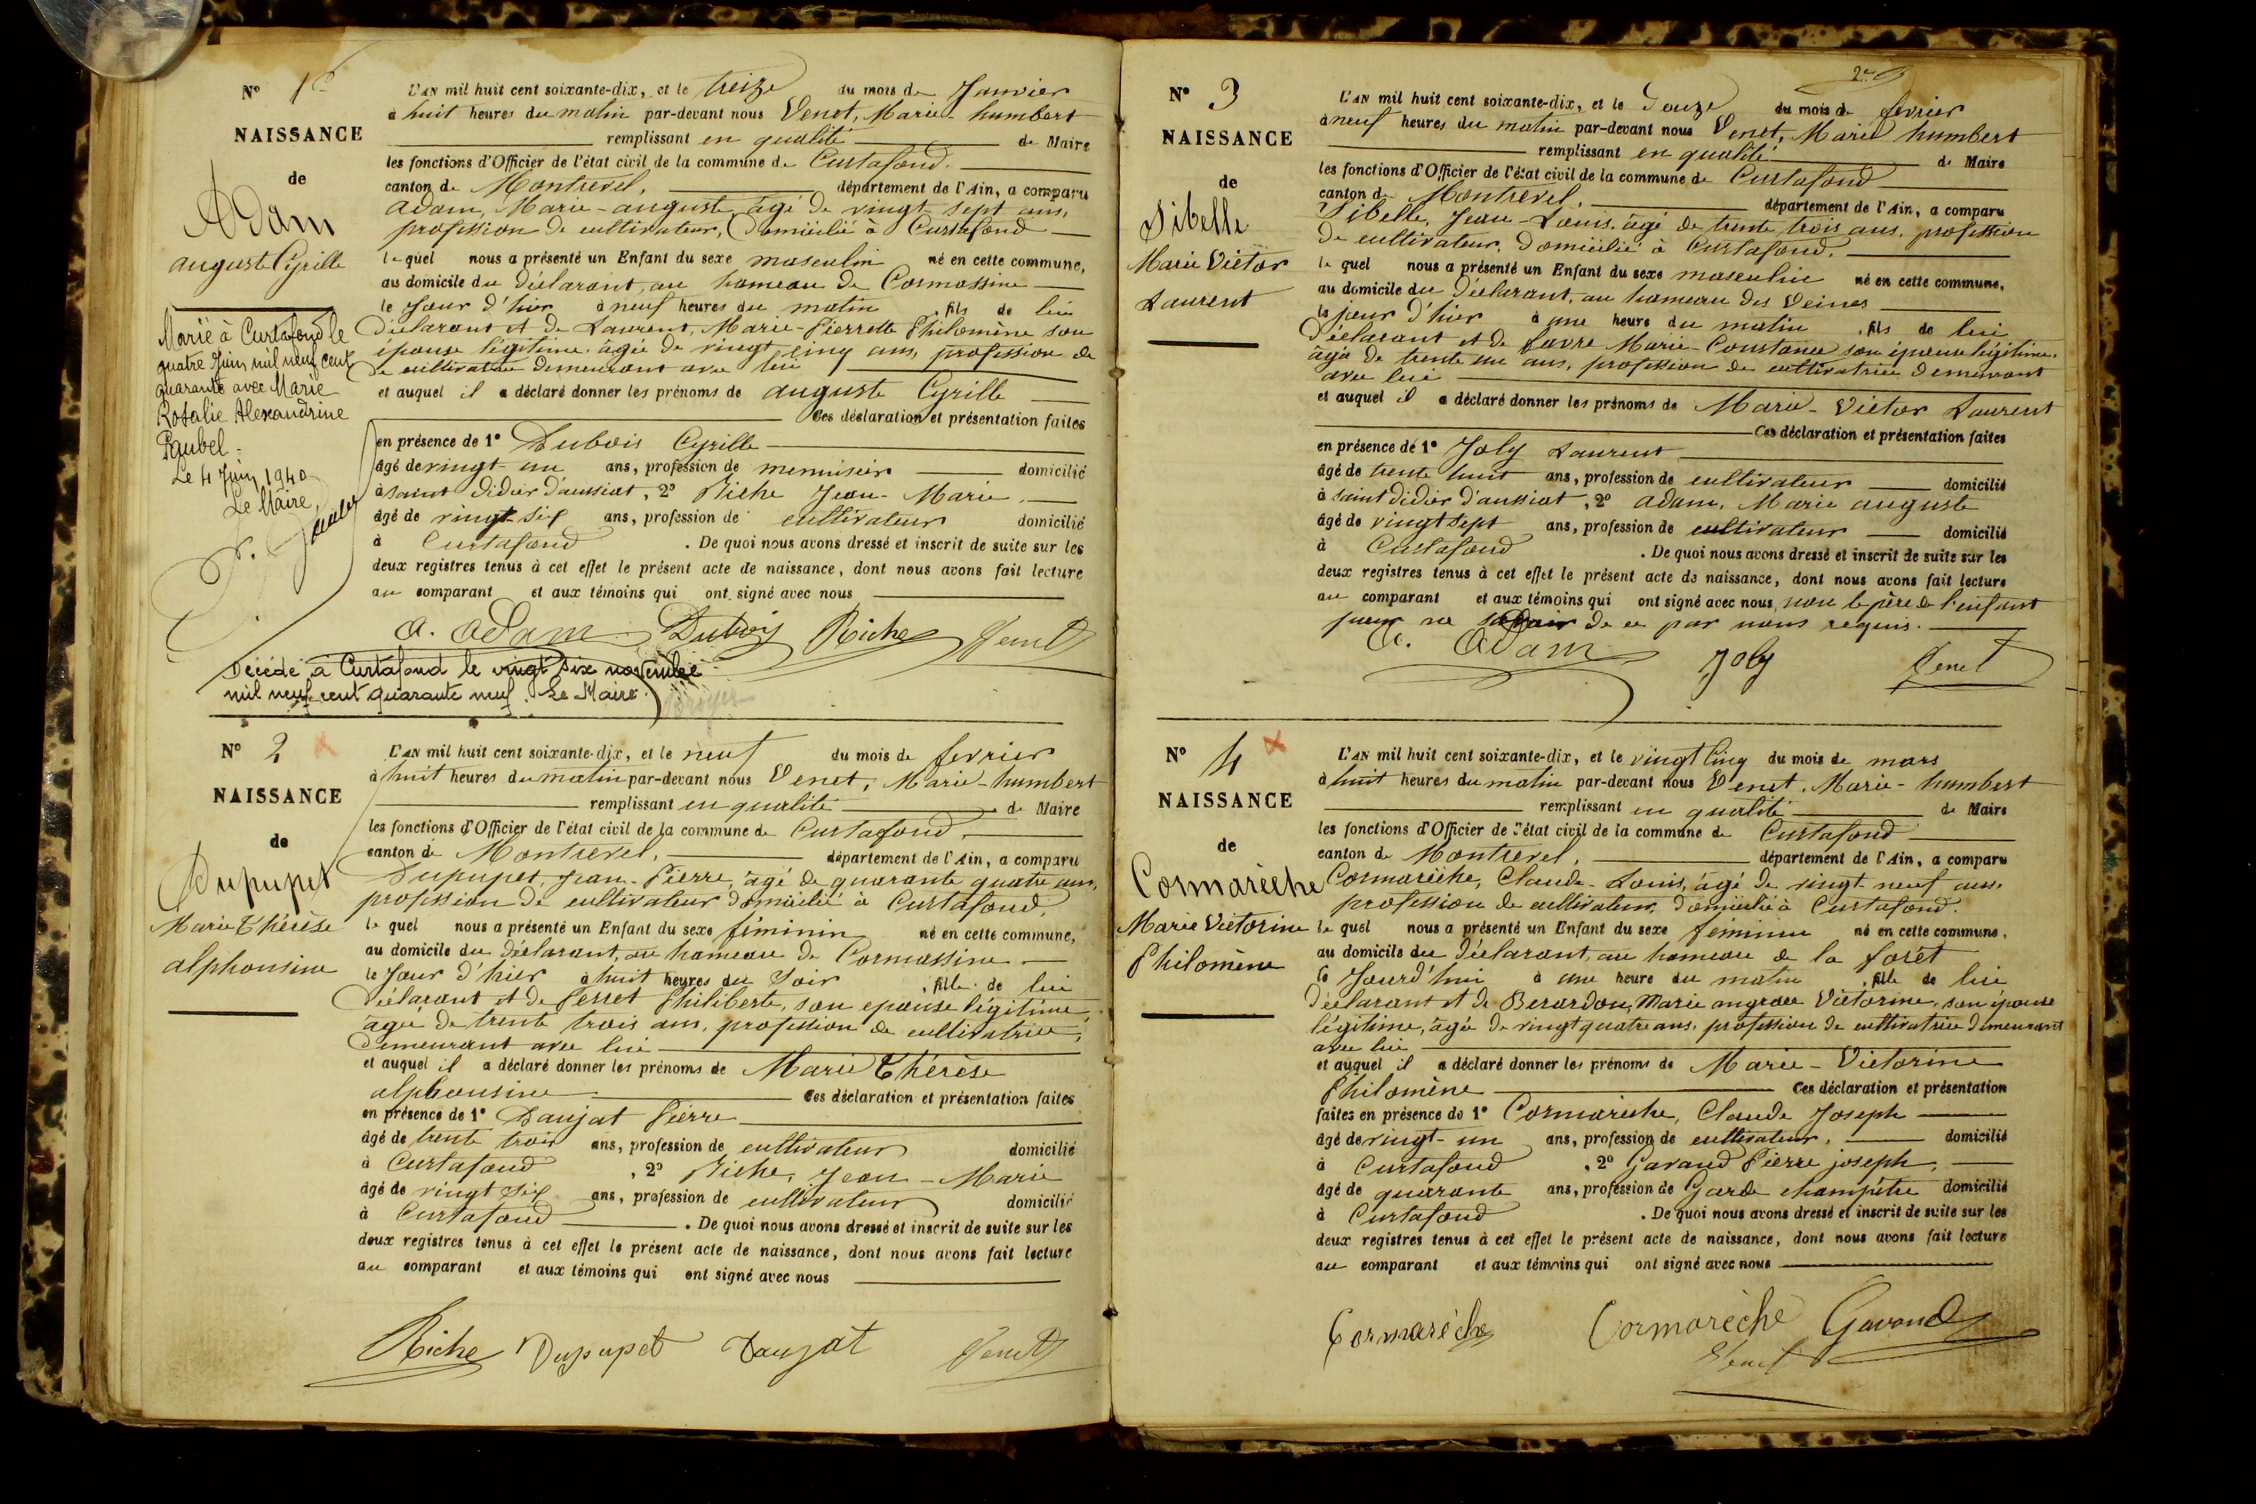 No 1er
NAISSANCE
de
Adam
auguste Cyrille
Marié à Curtafond le
quatre Juin mil neuf cent
quarante avec Marie
Rosalie Alexandrine
Raubel.
Le 4 Juin 1940
Le Maire
L'AN mil huit cent soixante-dix, et le treize du mois de Janvier
à huit heures du matin par-devant nous Venet, Marie-humbert
remplissant en qualité de Maire
les fonctions d'Officier de l'état civil de la commune de Curtafond.
canton de Montrevel, département de l'Ain, a comparu
adam, Marie-auguste, âgé de vingt sept ans,
profession de cultivateur, Domicilié à Curtafond
le quel nous a présenté un Enfant du sexe masculin né en cette commune,
au domicile du déclarant, au hameau de Cormassine
le Jour d'hier à neuf heures du matin, fils de lui
Déclarant et de Laurent, Marie-Pierrette Philomène son
épouse légitime, âgée de vingt cinq ans, profession de
cultivatrice demeurant avec lui
et auquel il a déclaré donner les prénoms de auguste Cyrille
Ces déclaration et présentation faites
en présence de 1° Dubois Cyrille
âgé de vingt-un ans, profession de menuisier domicilié
à saint Didier d'aussiat, 2° Riche Jean-Marie,
âgé de vingt-six ans, profession de cultivateur domicilié
à Curtafond. De quoi nous avons dressé et inscrit de suite sur les
deux registres tenus à cet effet le présent acte de naissance, dont nous avons fait lecture
au comparant et aux témoins qui ont signé avec nous
a. adam Dubois Riche Venet
Décédé à Curtafond le vingt six novembre
mil neuf cent quarante neuf. Le Maire.
No 2
NAISSANCE
de
Dupupet
Marie Thérèse
alphonsine
L'AN mil huit cent soixante-dix, et le neuf du mois de fevrier
à huit heures du matin par-devant nous Venet, Marie-humbert
remplissant en qualité de Maire
les fonctions d'Officier de l'état civil de la commune de Curtafond,
canton de Montrevel, département de l'Ain, a comparu
Dupupet, Jean-Pierre, âgé de quarante quatre ans,
profession de cultivateur domicilié à Curtafond,
le quel nous a présenté un Enfant du sexe féminin né en cette commune,
au domicile du Déclarant, au hameau de Cormassine
le Jour d'hier à huit heures du Soir, fille de lui
Déclarant et de Perret Philiberte, son epouse légitime,
âgée de trente trois ans, profession de cultivatrice,
Demeurant avec lui
et auquel il a déclaré donner les prénoms de Marie Thérèse
alphonsine Ces déclaration et présentation faites
en présence de 1° Daujat Pierre
âgé de trente trois ans, profession de cultivateur domicilié
à Curtafond, 2° Riche, Jean-Marie
âgé de vingt six ans, profession de cultivateur domicilié
à Curtafond. De quoi nous avons dressé et inscrit de suite sur les
deux registres tenus à cet effet le présent acte de naissance, dont nous avons fait lecture
au comparant et aux témoins qui ont signé avec nous
Riche Dupupet Daujat Venet
2e
No 3
NAISSANCE
de
Sibelle
Marie Victor
Laurent
L'AN mil huit cent soixante-dix, et le Douze du mois de fevrier
à neuf heures du matin par-devant nous Venet, Marie humbert
remplissant en qualité de Maire
les fonctions d'Officier de l'état civil de la commune de Curtafond
canton de Montrevel, département de l'Ain, a comparu
Sibelle, Jean-Louis, âgé de trente trois ans, profession
de cultivateur, domicilié à Curtafond,
le quel nous a présenté un Enfant du sexe masculin né en cette commune,
au domicile du Déclarant, au hameau des Veines
le jour d'hier à une heure du matin, fils de lui
Déclarant et de favre Marie-Constance son épouse légitime,
âgée de trente un ans, profession de cultivatrice demeurant
avec lui
et auquel il a déclaré donner les prénoms de Marie-Victor Laurent
Ces déclaration et présentation faites
en présence de 1° Joly Laurent
âgé de trente huit ans, profession de cultivateur domicilié
à saint didier d'aussiat, 2° adam, Marie auguste
âgé de vingt sept ans, profession de cultivateur domicilié
à Curtafond. De quoi nous avons dressé et inscrit de suite sur les
deux registres tenus à cet effet le présent acte de naissance, dont nous avons fait lecture
au comparant et aux témoins qui ont signé avec nous, non le père de l'enfant
pour ne savoir de ce par nous requis.
a. adam Joly Venet
No 4
NAISSANCE
de
Cormarèche
Marie Victorine
Philomène
L'AN mil huit cent soixante-dix, et le vingt cinq du mois de mars
à huit heures du matin par-devant nous Venet, Marie-humbert
remplissant en qualité de Maire
les fonctions d'Officier de l'état civil de la commune de Curtafond
canton de Montrevel, département de l'Ain, a comparu
Cormarèche, Claude-Louis, âgé de vingt neuf ans,
profession de cultivateur, domicilié à Curtafond.
le quel nous a présenté un Enfant du sexe féminin né en cette commune,
au domicile du Déclarant, au hameau de la forêt
le Jourd'hui à une heure du matin, fille de lui
déclarant et de Berardon, Marie Victorine, son épouse
légitime, âgée de vingt quatre ans, profession de cultivatrice demeurant
avec lui
et auquel il a déclaré donner les prénoms de Marie-Victorine
Philomène Ces déclaration et présentation
faites en présence de 1° Cormarèche, Claude Joseph
âgé de vingt-un ans, profession de cultivateur, domicilié
à Curtafond, 2° Gavand Pierre joseph,
âgé de quarante ans, profession de Garde champêtre domicilié
à Curtafond. De quoi nous avons dressé et inscrit de suite sur les
deux registres tenus à cet effet le présent acte de naissance, dont nous avons fait lecture
au comparant et aux témoins qui ont signé avec nous
Cormarèche Cormarèche Gavand
Venet